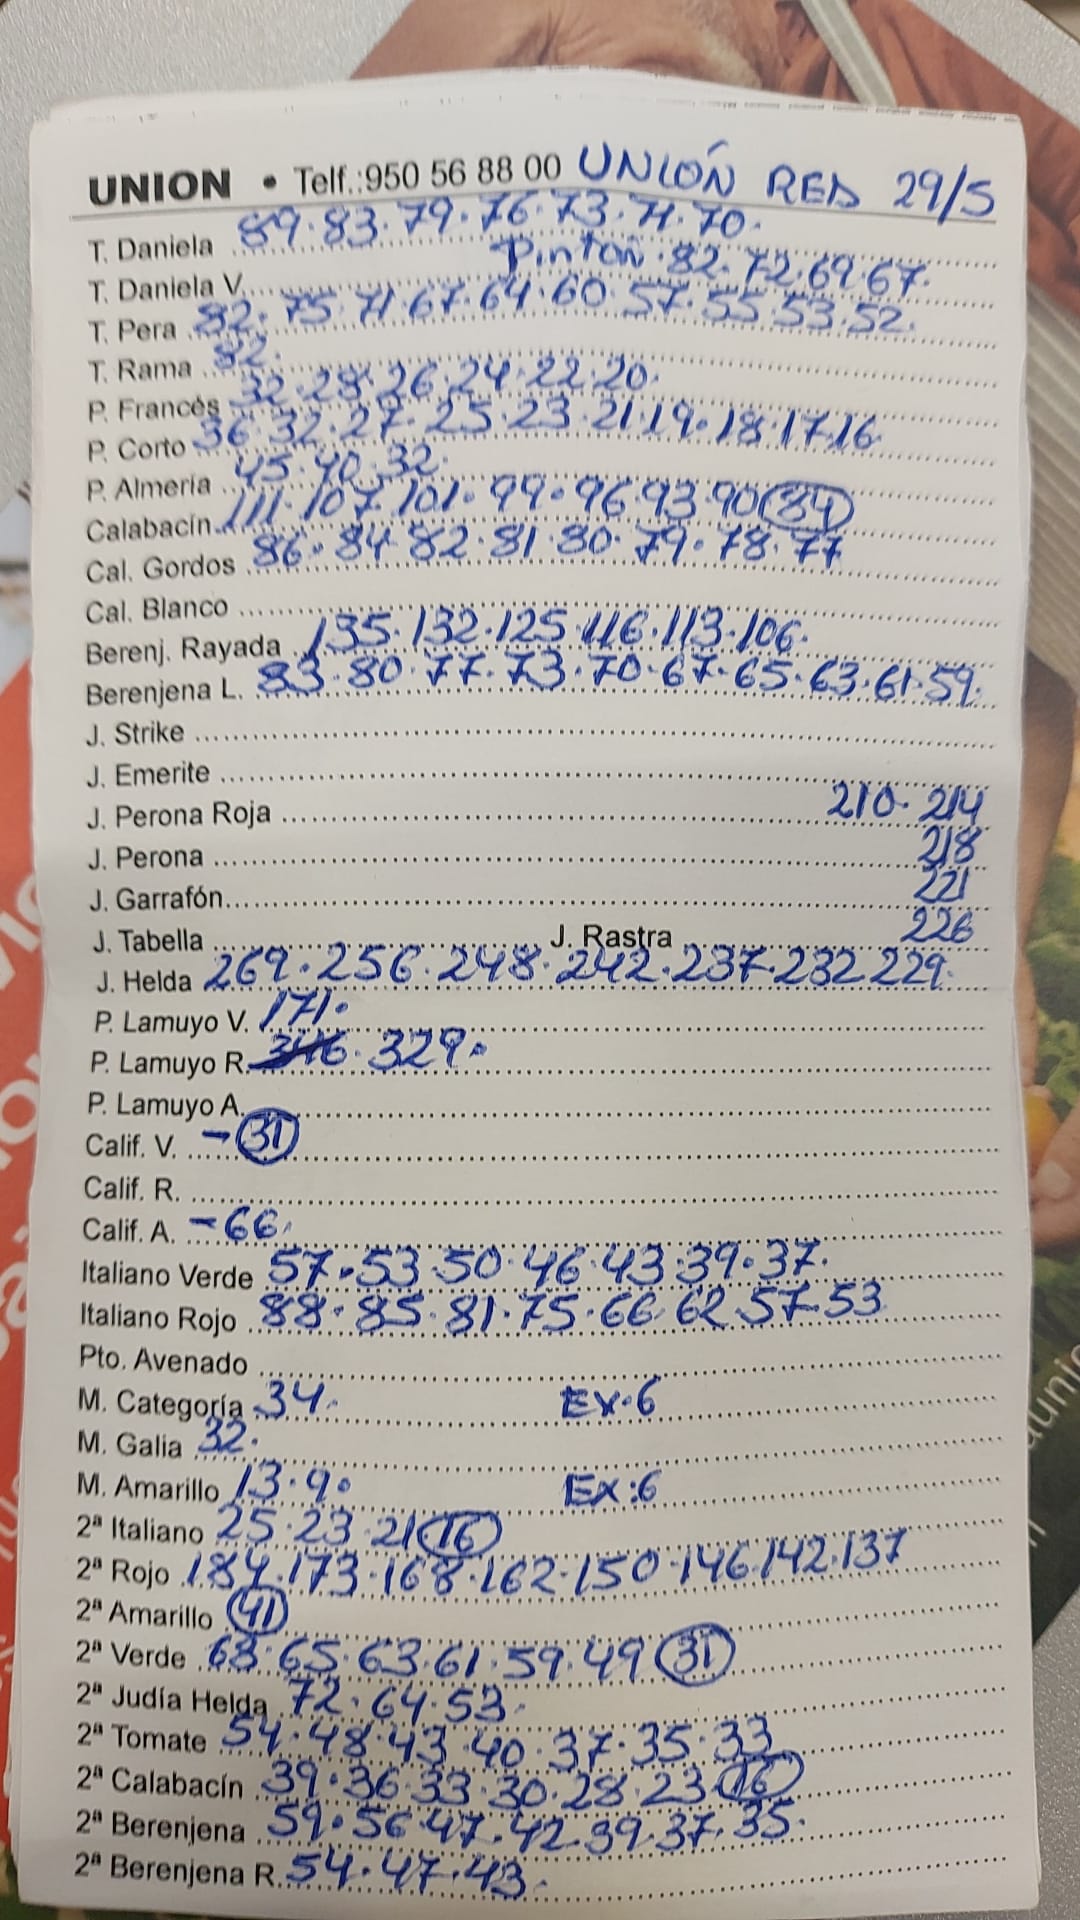 UNION • Telf.:950 56 88 00 UNIÓN RED 29/5
T. Daniela 89·83·79·76·73·71·70·
T. Daniela V. Pinton·82·72·69·67·
T. Pera 82·75·71·67·64·60·57·55·53·52·
T. Rama 82·
P. Francés 32·28·26·24·22·20·
P. Corto 36·32·27·25·23·21·19·18·17·16·
P. Almería 45·40·32·
Calabacín 111·107·101·99·96·93·90 84
Cal. Gordos 86·84·82·81·80·79·78·77
Cal. Blanco
Berenj. Rayada 135·132·125·116·113·106·
Berenjena L. 83·80·77·73·70·67·65·63·61·59·
J. Strike
J. Emerite
J. Perona Roja 210·214
J. Perona 218
J. Garrafón 221
J. Tabella J. Rastra 226
J. Helda 269·256·248·242·237·232 229·
P. Lamuyo V. 171·
P. Lamuyo R. 346·329·
P. Lamuyo A.
Calif. V. -31
Calif. R.
Calif. A. -66·
Italiano Verde 57·53·50·46·43·39·37·
Italiano Rojo 88·85·81·75·66·62·57·53
Pto. Avenado
M. Categoría 34· EX·6
M. Galia 32·
M. Amarillo 13·9· Ex:6
2ª Italiano 25·23·21 16
2ª Rojo 184·173·168·162·150·146·142·137
2ª Amarillo 41
2ª Verde 68·65·63·61·59·49 31
2ª Judía Helda 72·64·53·
2ª Tomate 54·48·43·40·37·35·33
2ª Calabacín 39·36·33·30·28·23 16
2ª Berenjena 59·56·47·42·39·37·35·
2ª Berenjena R. 54·47·43·